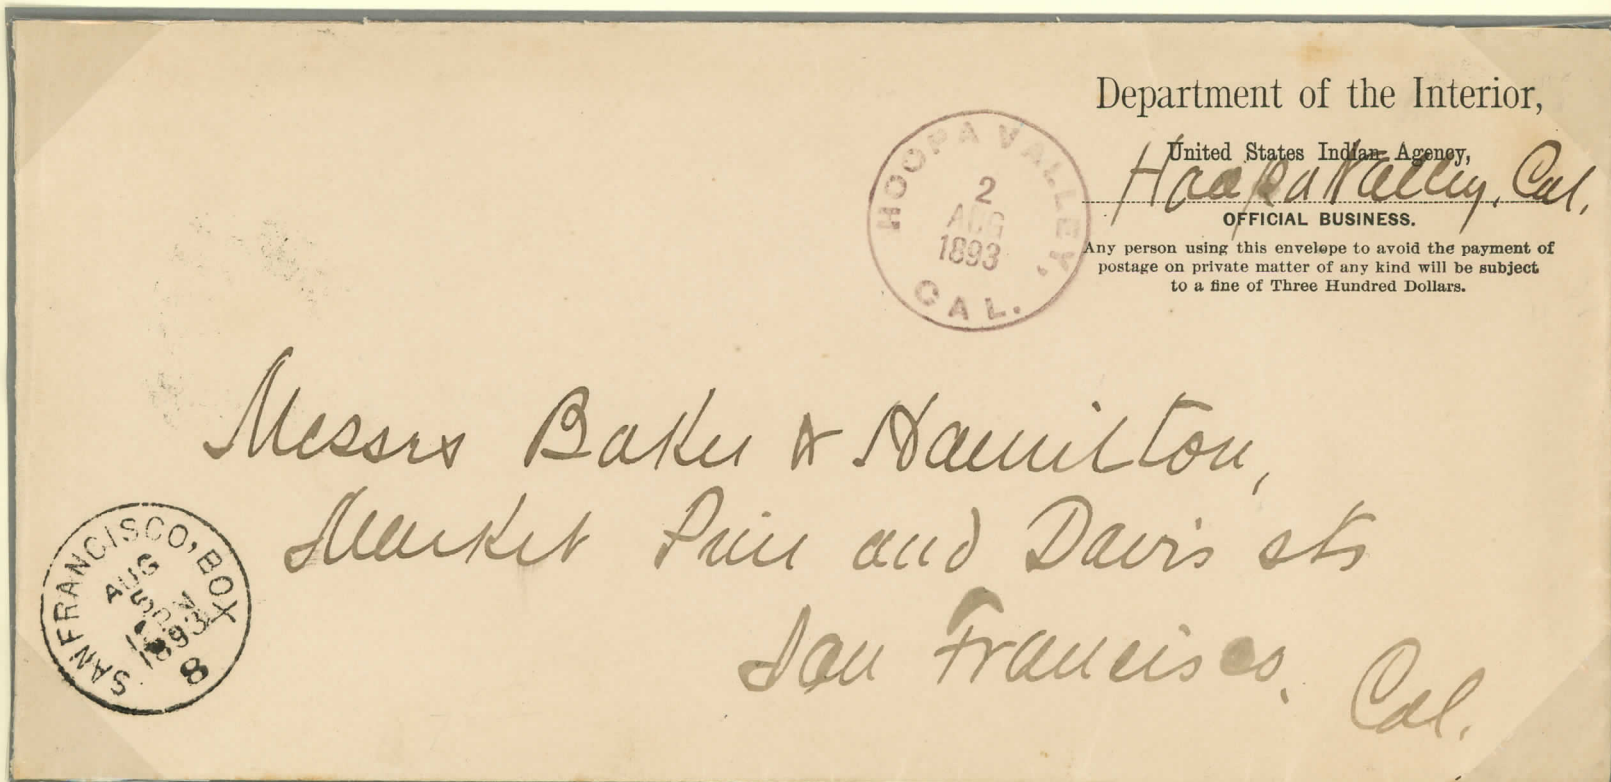 Department of the Interior,
United States Indian Agency,
Hoopa Valley, Cal.
OFFICIAL BUSINESS.
Any person using this envelope to avoid the payment of
postage on private matter of any kind will be subject
to a fine of Three Hundred Dollars.
HOOPA VALLEY,
2
AUG
1893
CAL.
Messrs Baker & Hamilton,
Market Pine and Davis sts
San Francisco.
Cal.
SAN FRANCISCO, BOX
AUG
5
1893
8